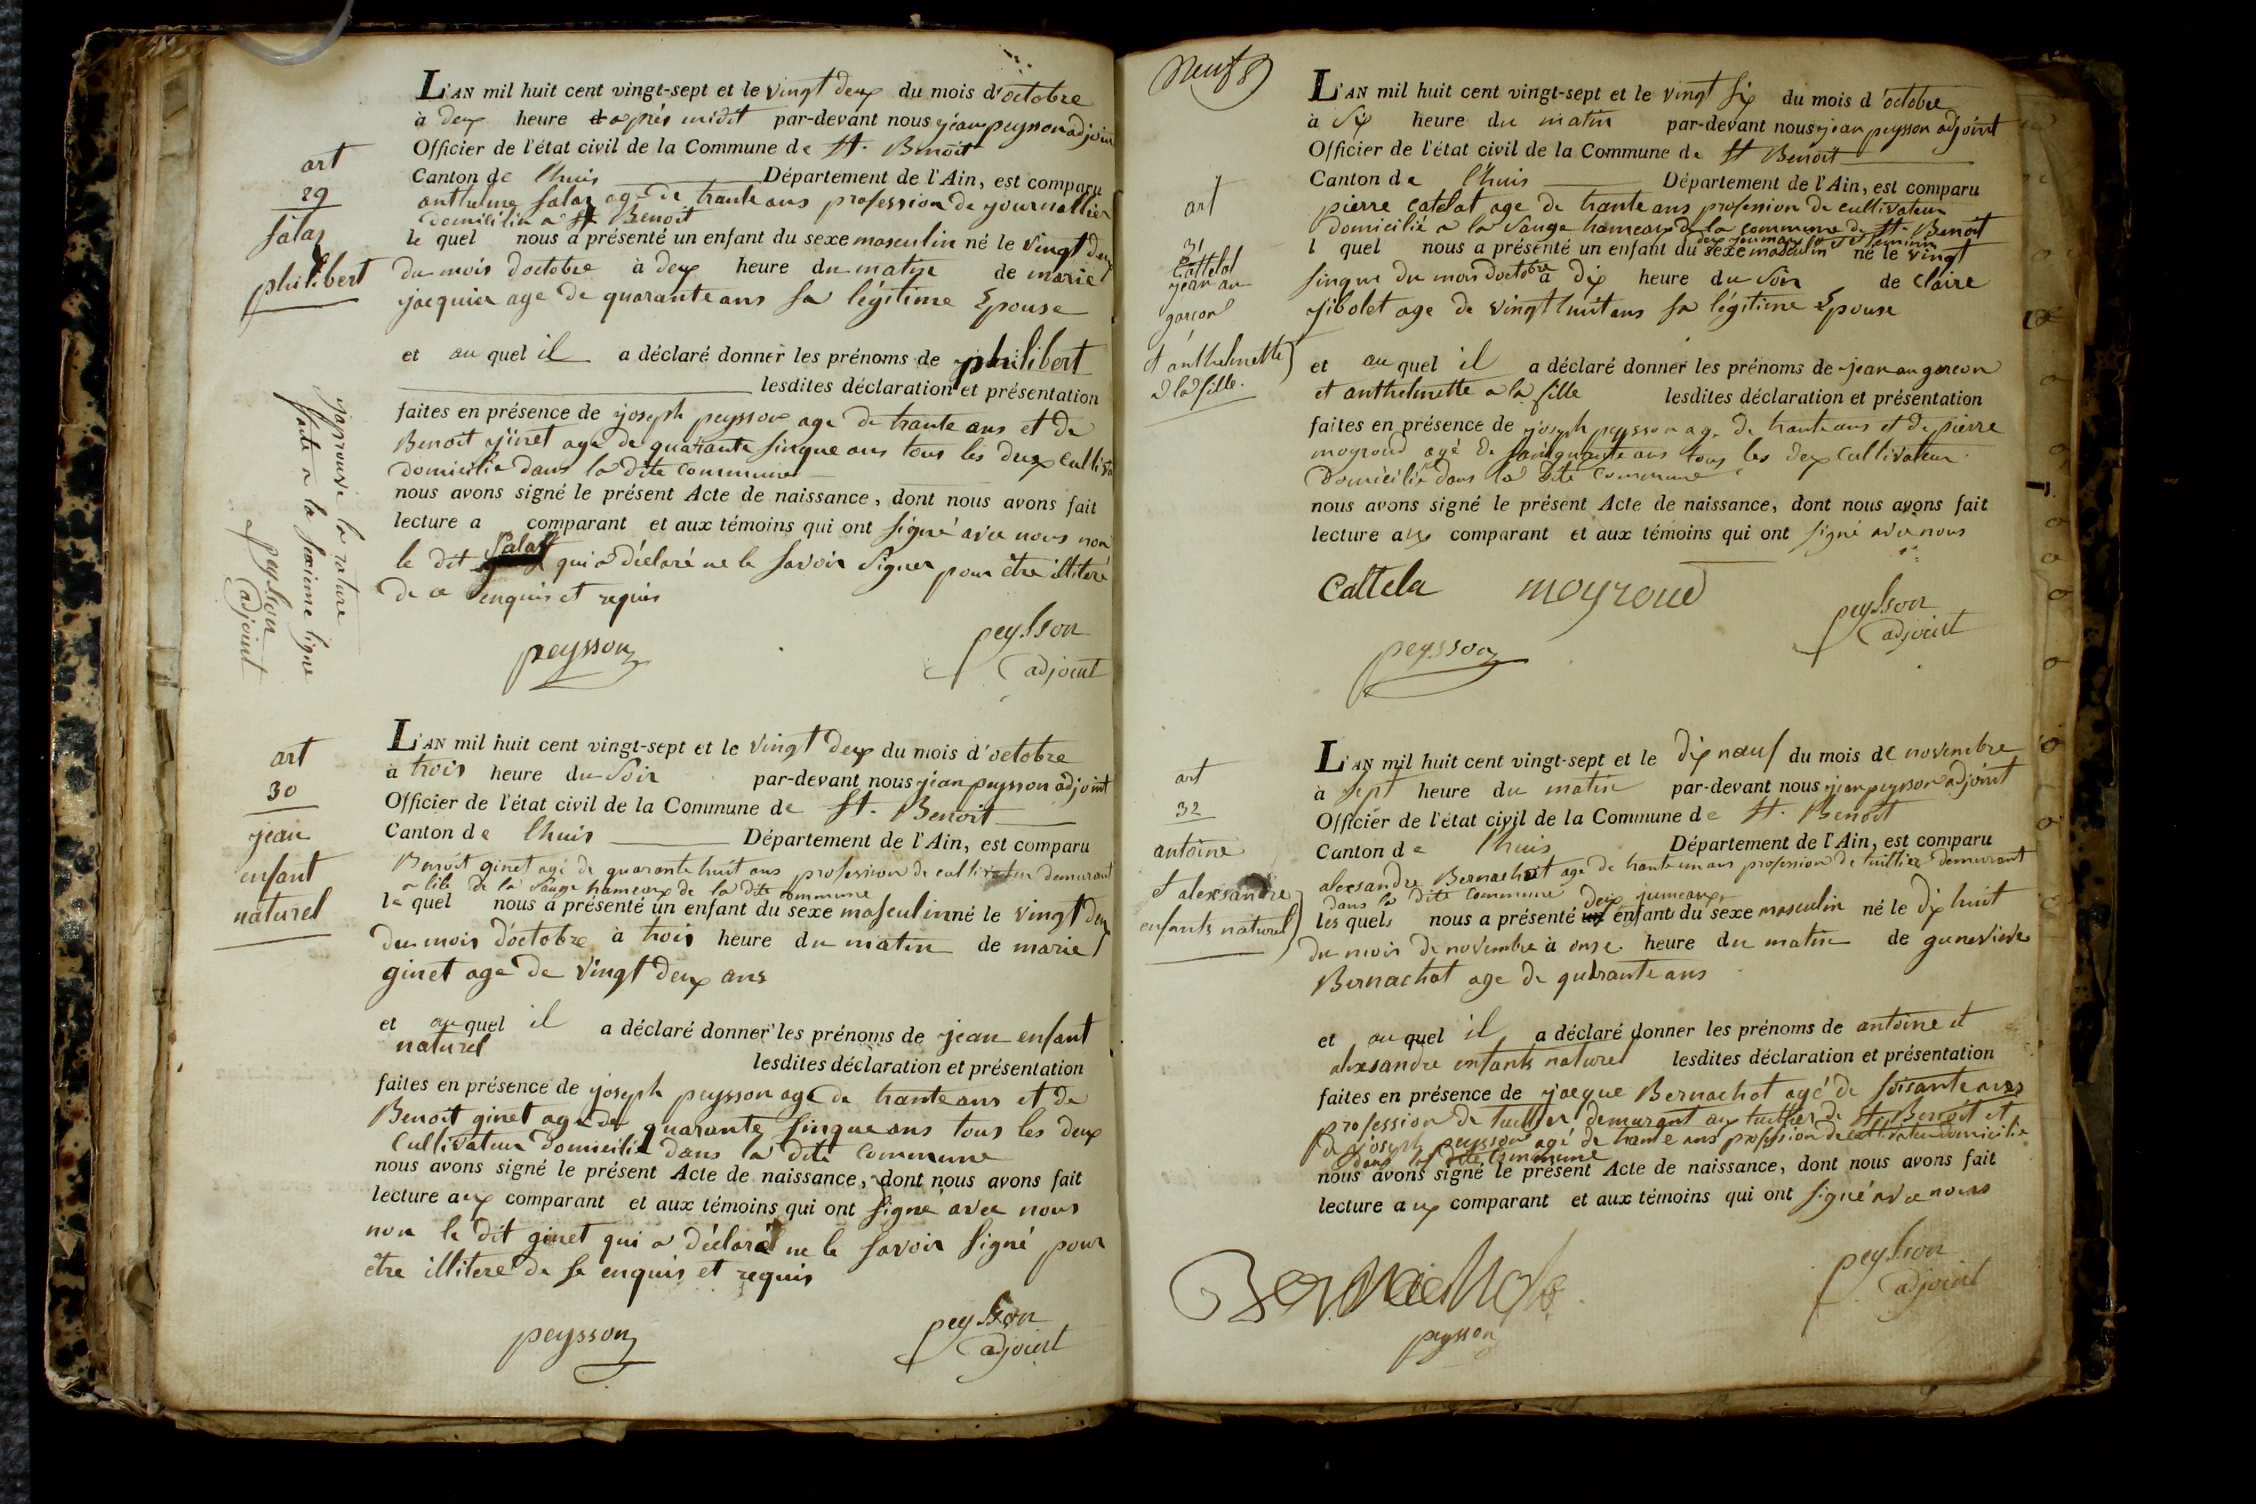 art
29
salaz
philibert
L'AN mil huit cent vingt-sept et le vingt deux du mois d'octobre
à deux heure d'après midit par-devant nous jean peysson adjoint
Officier de l'état civil de la Commune de St. Benoit
Canton de lhuis Département de l'Ain, est comparu
anthelme salaz agé de trante ans profession de journallier
domicilié a St Benoit
le quel nous a présenté un enfant du sexe masculin né le vingt deux
du mois doctobre à deux heure du matin de marie
jacquier age de quarante ans sa légitime Epouse
et au quel il a déclaré donner les prénoms de philibert
lesdites déclaration et présentation
faites en présence de joseph peysson age de trante ans et de
Benoit ginet age de quarante sinque ans tous les deux cultiva
domicilie dans la dite commune
nous avons signé le présent Acte de naissance, dont nous avons fait
lecture a comparant et aux témoins qui ont signé avec nous non
le dit Salaz qui a déclaré ne le savoir signer pour être illiteré
de ce enquis et requis
peysson
peysson
adjoint
japrouve la rature
faite a la sexieme ligne
peysson
adjoint
art
30
jean
enfant
naturel
L'AN mil huit cent vingt-sept et le vingt deux du mois d'octobre
à trois heure du soir par-devant nous jean peysson adjoint
Officier de l'état civil de la Commune de St. Benoit
Canton de lhuis Département de l'Ain, est comparu
Benoit ginet agé de quarante huit ans profession de cultivateur demurant
a lile de la Sauge hameaux de la dite commune
le quel nous a présenté un enfant du sexe masculin né le vingt deux
du mois d'octobre à trois heure du matin de marie
ginet age de vingt deux ans
et au quel il a déclaré donner les prénoms de jean enfant
naturel
lesdites déclaration et présentation
faites en présence de joseph peysson age de trante ans et de
Benoit ginet age de quarante sinque ans tous les deux
cultivateur domicilié dans la dite commune
nous avons signé le présent Acte de naissance, dont nous avons fait
lecture aux comparant et aux témoins qui ont signé avec nous
non le dit ginet qui a déclaré ne le savoir signé pour
être illiteré de se enquis et requis
peysson
peysson
adjoint
neuf 9
art
31
Cattelat
jean au
garcon
et anthelmette
a la fille.
L'AN mil huit cent vingt-sept et le vingt six du mois d'octobre
à six heure du matin par-devant nous jean peysson adjoint
Officier de l'état civil de la Commune de St Benoit
Canton de lhuis Département de l'Ain, est comparu
pierre catelat age de trante ans profession de cultivateur
domicilié a la Sauge hameaux de la commune de St. Benoit
l quel nous a présenté un enfant du sexe masculin né le vingt
sinque du mois doctobre a dix heure du soir de claire
jibolet age de vingt huit ans sa légitime Epouse
et au quel il a déclaré donner les prénoms de jean au garcon
et anthelmette a la fille lesdites déclaration et présentation
faites en présence de joseph peysson age de trante ans et de pierre
moyroud agé de sainquante ans tous les deux cultivateur
domicilié dans la dite commune
nous avons signé le présent Acte de naissance, dont nous avons fait
lecture aux comparant et aux témoins qui ont signé avec nous
Cattela moyroud
peysson
adjoint
peysson
art
32
antoine
et alexsandre
enfants naturel
L'AN mil huit cent vingt-sept et le dix neuf du mois de novembre
à sept heure du matin par-devant nous jean peysson adjoint
Officier de l'état civil de la Commune de St. Benoit
Canton de lhuis Département de l'Ain, est comparu
alexsandre Bernachot age de trante un ans profession de tuillier demurant
dans la dite commune deux jumeaux
les quels nous a présenté un enfant du sexe masculin né le dix huit
du mois de novembre à onze heure du matin de guneviève
Bernachot age de quarante ans
et au quel il a déclaré donner les prénoms de antoine et
alexsandre enfants naturel lesdites déclaration et présentation
faites en présence de jacque Bernachot agé de soisante ans
profession de tuillier demurant aux tuillier de St. Benoit et
de joseph peysson agé de trante ans profession de cultivateur domicilié
dans la dite commune
nous avons signé le présent Acte de naissance, dont nous avons fait
lecture aux comparant et aux témoins qui ont signé avec nous
Bernachot
peysson
adjoint
peysson